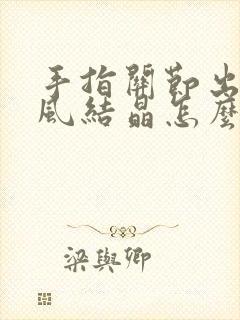 手指關節出
風結晶怎麼
梁與卿